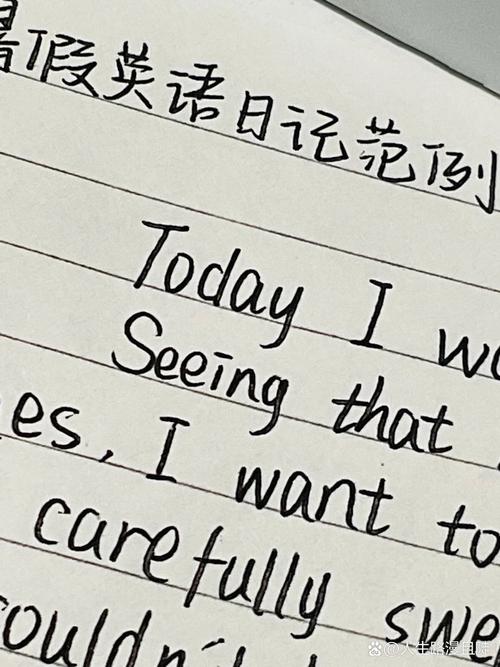 暑假英语日记范例
Today I
Seeing that
es, I want to
carefully swe
ouldn't